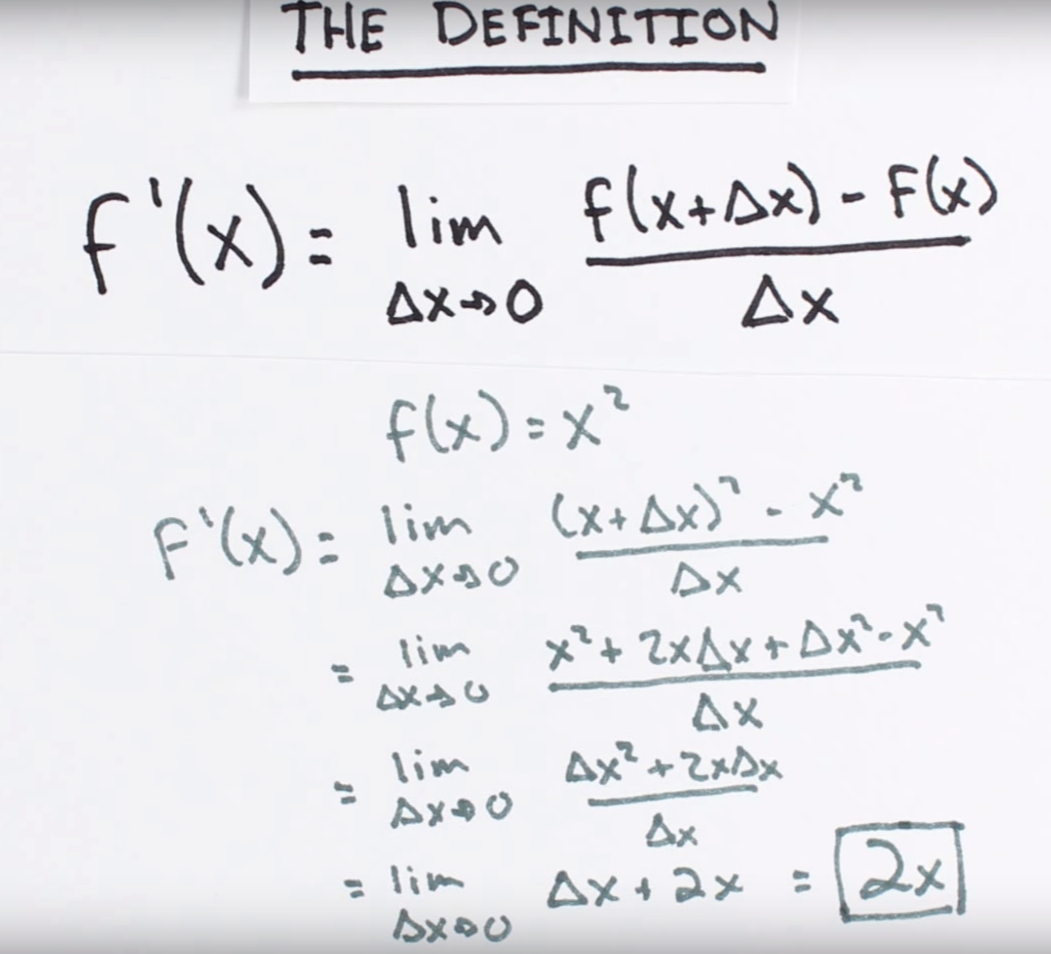 THE DEFINITION
f'(x) = lim Δx→0 f(x+Δx) - F(x) / Δx
f(x) = x²
F'(x) = lim Δx→0 (x+Δx)² - x² / Δx
= lim Δx→0 x² + 2xΔx + Δx² - x² / Δx
= lim Δx→0 Δx² + 2xΔx / Δx
= lim Δx→0 Δx + 2x = 2x